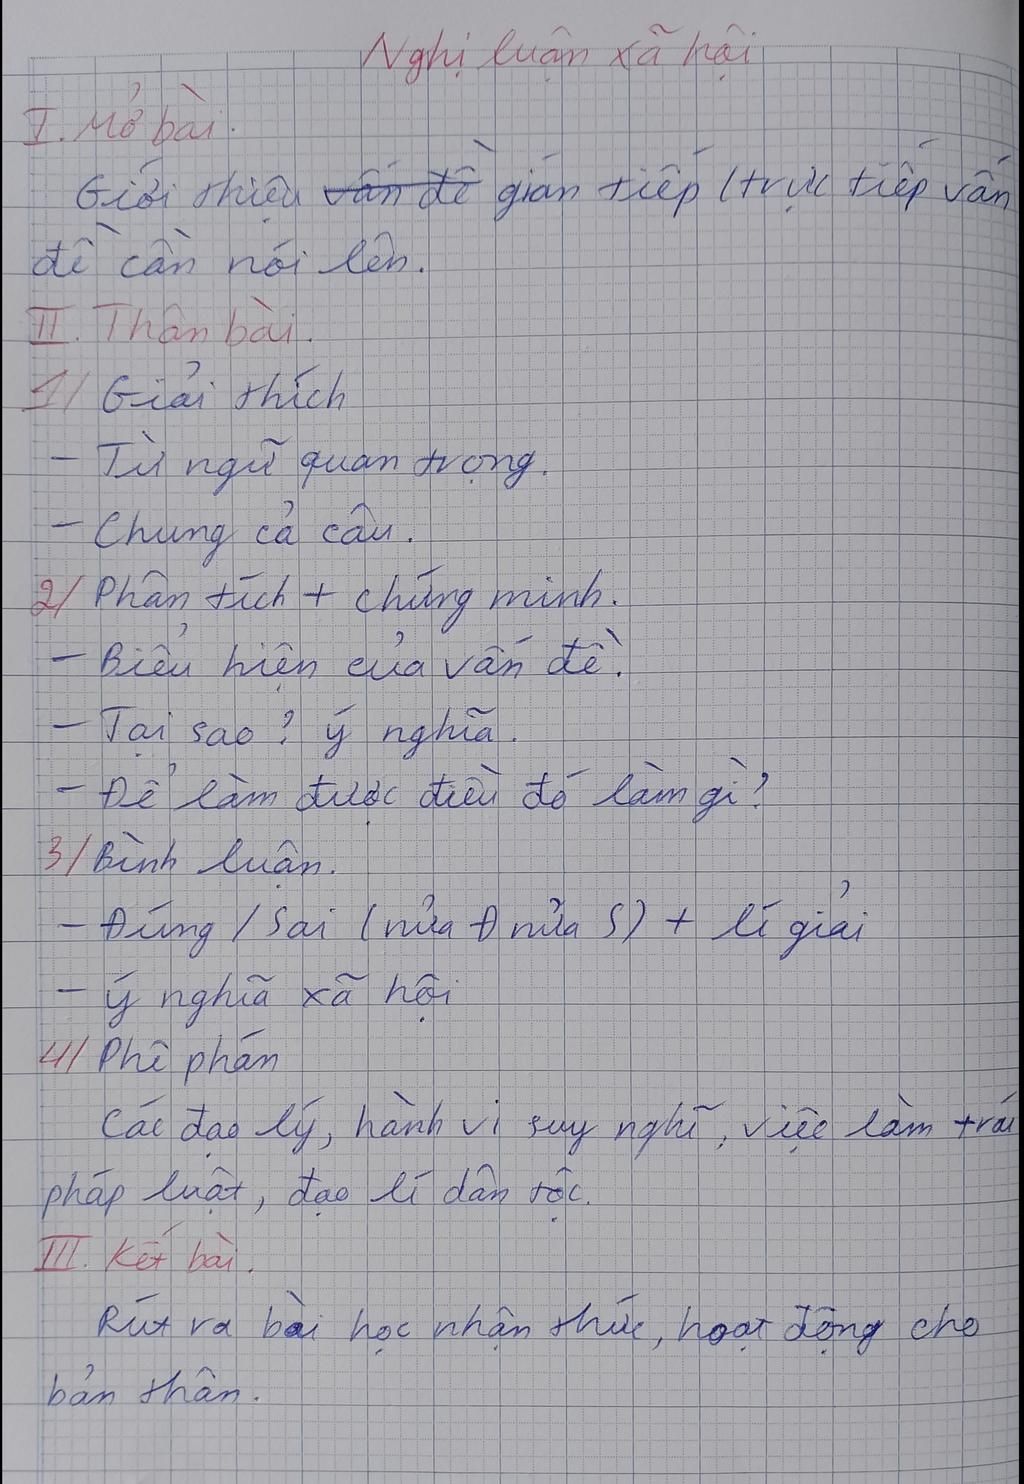 Nghị luận xã hội
I. Mở bài.
Giới thiệu vấn đề gián tiếp (trực tiếp vấn
đề cần nói lên.
II. Thân bài.
1/ Giải thích
- Từ ngữ quan trọng.
- Chung cả câu.
2/ Phân tích + chứng minh.
- Biểu hiện của vấn đề.
- Tại sao? ý nghĩa.
- Để làm được điều đó làm gì?
3/ Bình luận.
- Đúng / Sai (nửa Đ nửa S) + lí giải
- ý nghĩa xã hội
4/ Phê phán
Các đạo lý, hành vi suy nghĩ, việc làm trái
pháp luật, đạo lí dân tộc.
III. Kết bài.
Rút ra bài học nhận thức, hoạt động cho
bản thân.